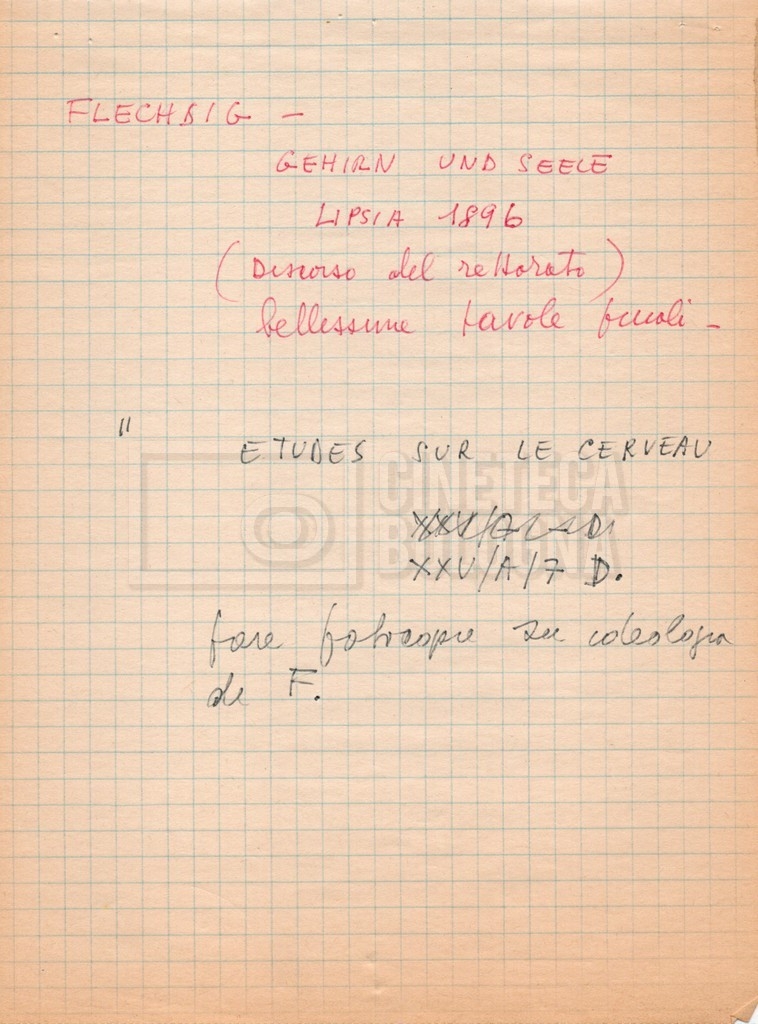 FLECHSIG —
GEHIRN UND SEELE
LIPSIA 1896
(Discorso del rettorato)
bellissime tavole finali —
" ETUDES SUR LE CERVEAU
CINETECA
BOLOGNA
XXV/A/7 D.
fare fotocopie su ideologia
di F.